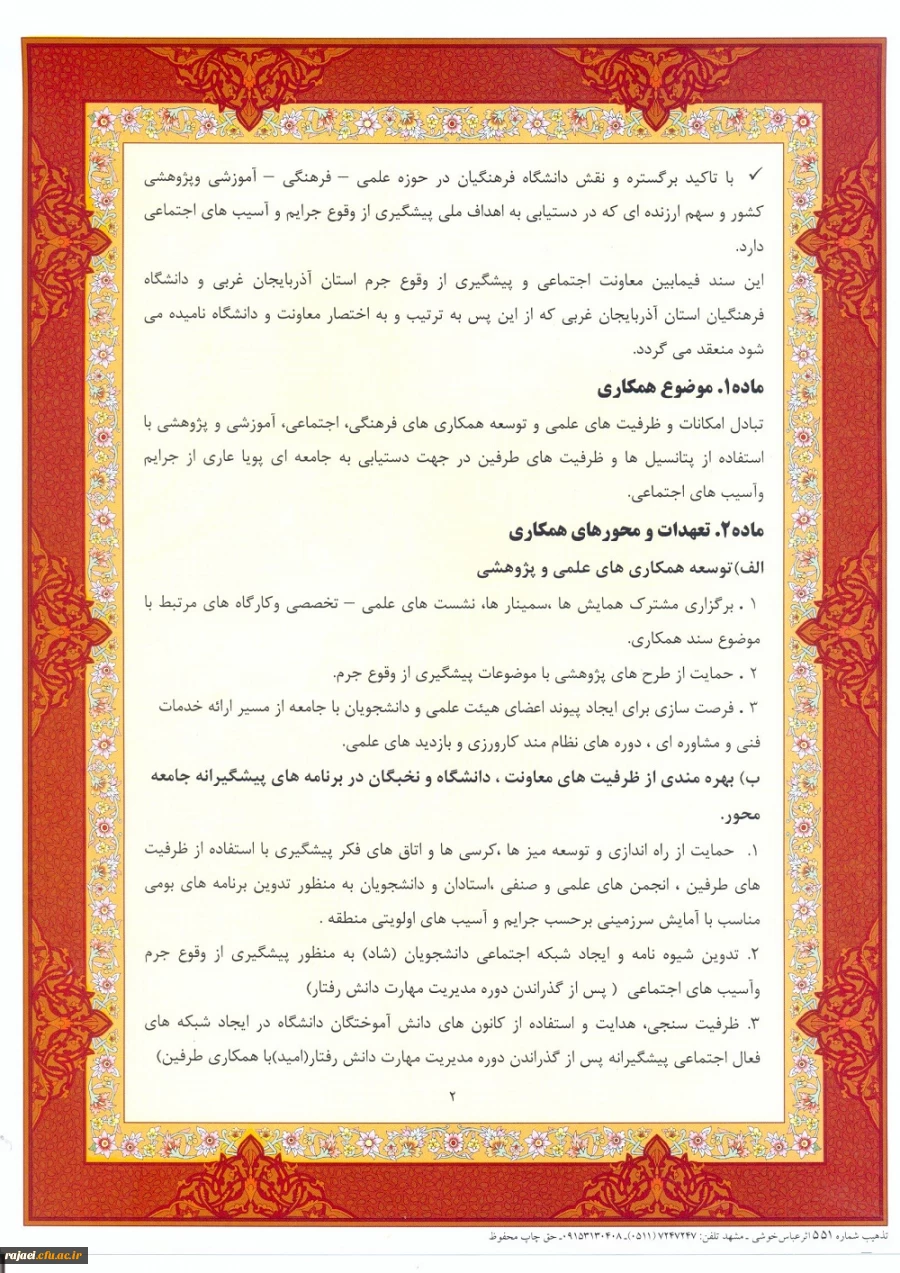 ✓ با تاکید برگستره و نقش دانشگاه فرهنگیان در حوزه علمی – فرهنگی – آموزشی وپژوهشی
کشور و سهم ارزنده ای که در دستیابی به اهداف ملی پیشگیری از وقوع جرایم و آسیب های اجتماعی
دارد.
این سند فیمابین معاونت اجتماعی و پیشگیری از وقوع جرم استان آذربایجان غربی و دانشگاه
فرهنگیان استان آذربایجان غربی که از این پس به ترتیب و به اختصار معاونت و دانشگاه نامیده می
شود منعقد می گردد.
ماده۱. موضوع همکاری
تبادل امکانات و ظرفیت های علمی و توسعه همکاری های فرهنگی، اجتماعی، آموزشی و پژوهشی با
استفاده از پتانسیل ها و ظرفیت های طرفین در جهت دستیابی به جامعه ای پویا عاری از جرایم
وآسیب های اجتماعی.
ماده۲. تعهدات و محورهای همکاری
الف)توسعه همکاری های علمی و پژوهشی
۱ . برگزاری مشترک همایش ها ،سمینار ها، نشست های علمی – تخصصی وکارگاه های مرتبط با
موضوع سند همکاری.
۲ . حمایت از طرح های پژوهشی با موضوعات پیشگیری از وقوع جرم.
۳ . فرصت سازی برای ایجاد پیوند اعضای هیئت علمی و دانشجویان با جامعه از مسیر ارائه خدمات
فنی و مشاوره ای ، دوره های نظام مند کارورزی و بازدید های علمی.
ب) بهره مندی از ظرفیت های معاونت ، دانشگاه و نخبگان در برنامه های پیشگیرانه جامعه
محور.
۱. حمایت از راه اندازی و توسعه میز ها ،کرسی ها و اتاق های فکر پیشگیری با استفاده از ظرفیت
های طرفین ، انجمن های علمی و صنفی ،استادان و دانشجویان به منظور تدوین برنامه های بومی
مناسب با آمایش سرزمینی برحسب جرایم و آسیب های اولویتی منطقه .
۲. تدوین شیوه نامه و ایجاد شبکه اجتماعی دانشجویان (شاد) به منظور پیشگیری از وقوع جرم
وآسیب های اجتماعی ( پس از گذراندن دوره مدیریت مهارت دانش رفتار)
۳. ظرفیت سنجی، هدایت و استفاده از کانون های دانش آموختگان دانشگاه در ایجاد شبکه های
فعال اجتماعی پیشگیرانه پس از گذراندن دوره مدیریت مهارت دانش رفتار(امید)با همکاری طرفین)
۲
تذهیب شماره ۵۵۱ اثر عباس خوشی ـ مشهد تلفن: ۷۲۴۷۲۴۷ (۰۵۱۱)ـ ۰۹۱۵۳۱۳۰۴۰۸ـ حق چاپ محفوظ
rajaei.cfu.ac.ir